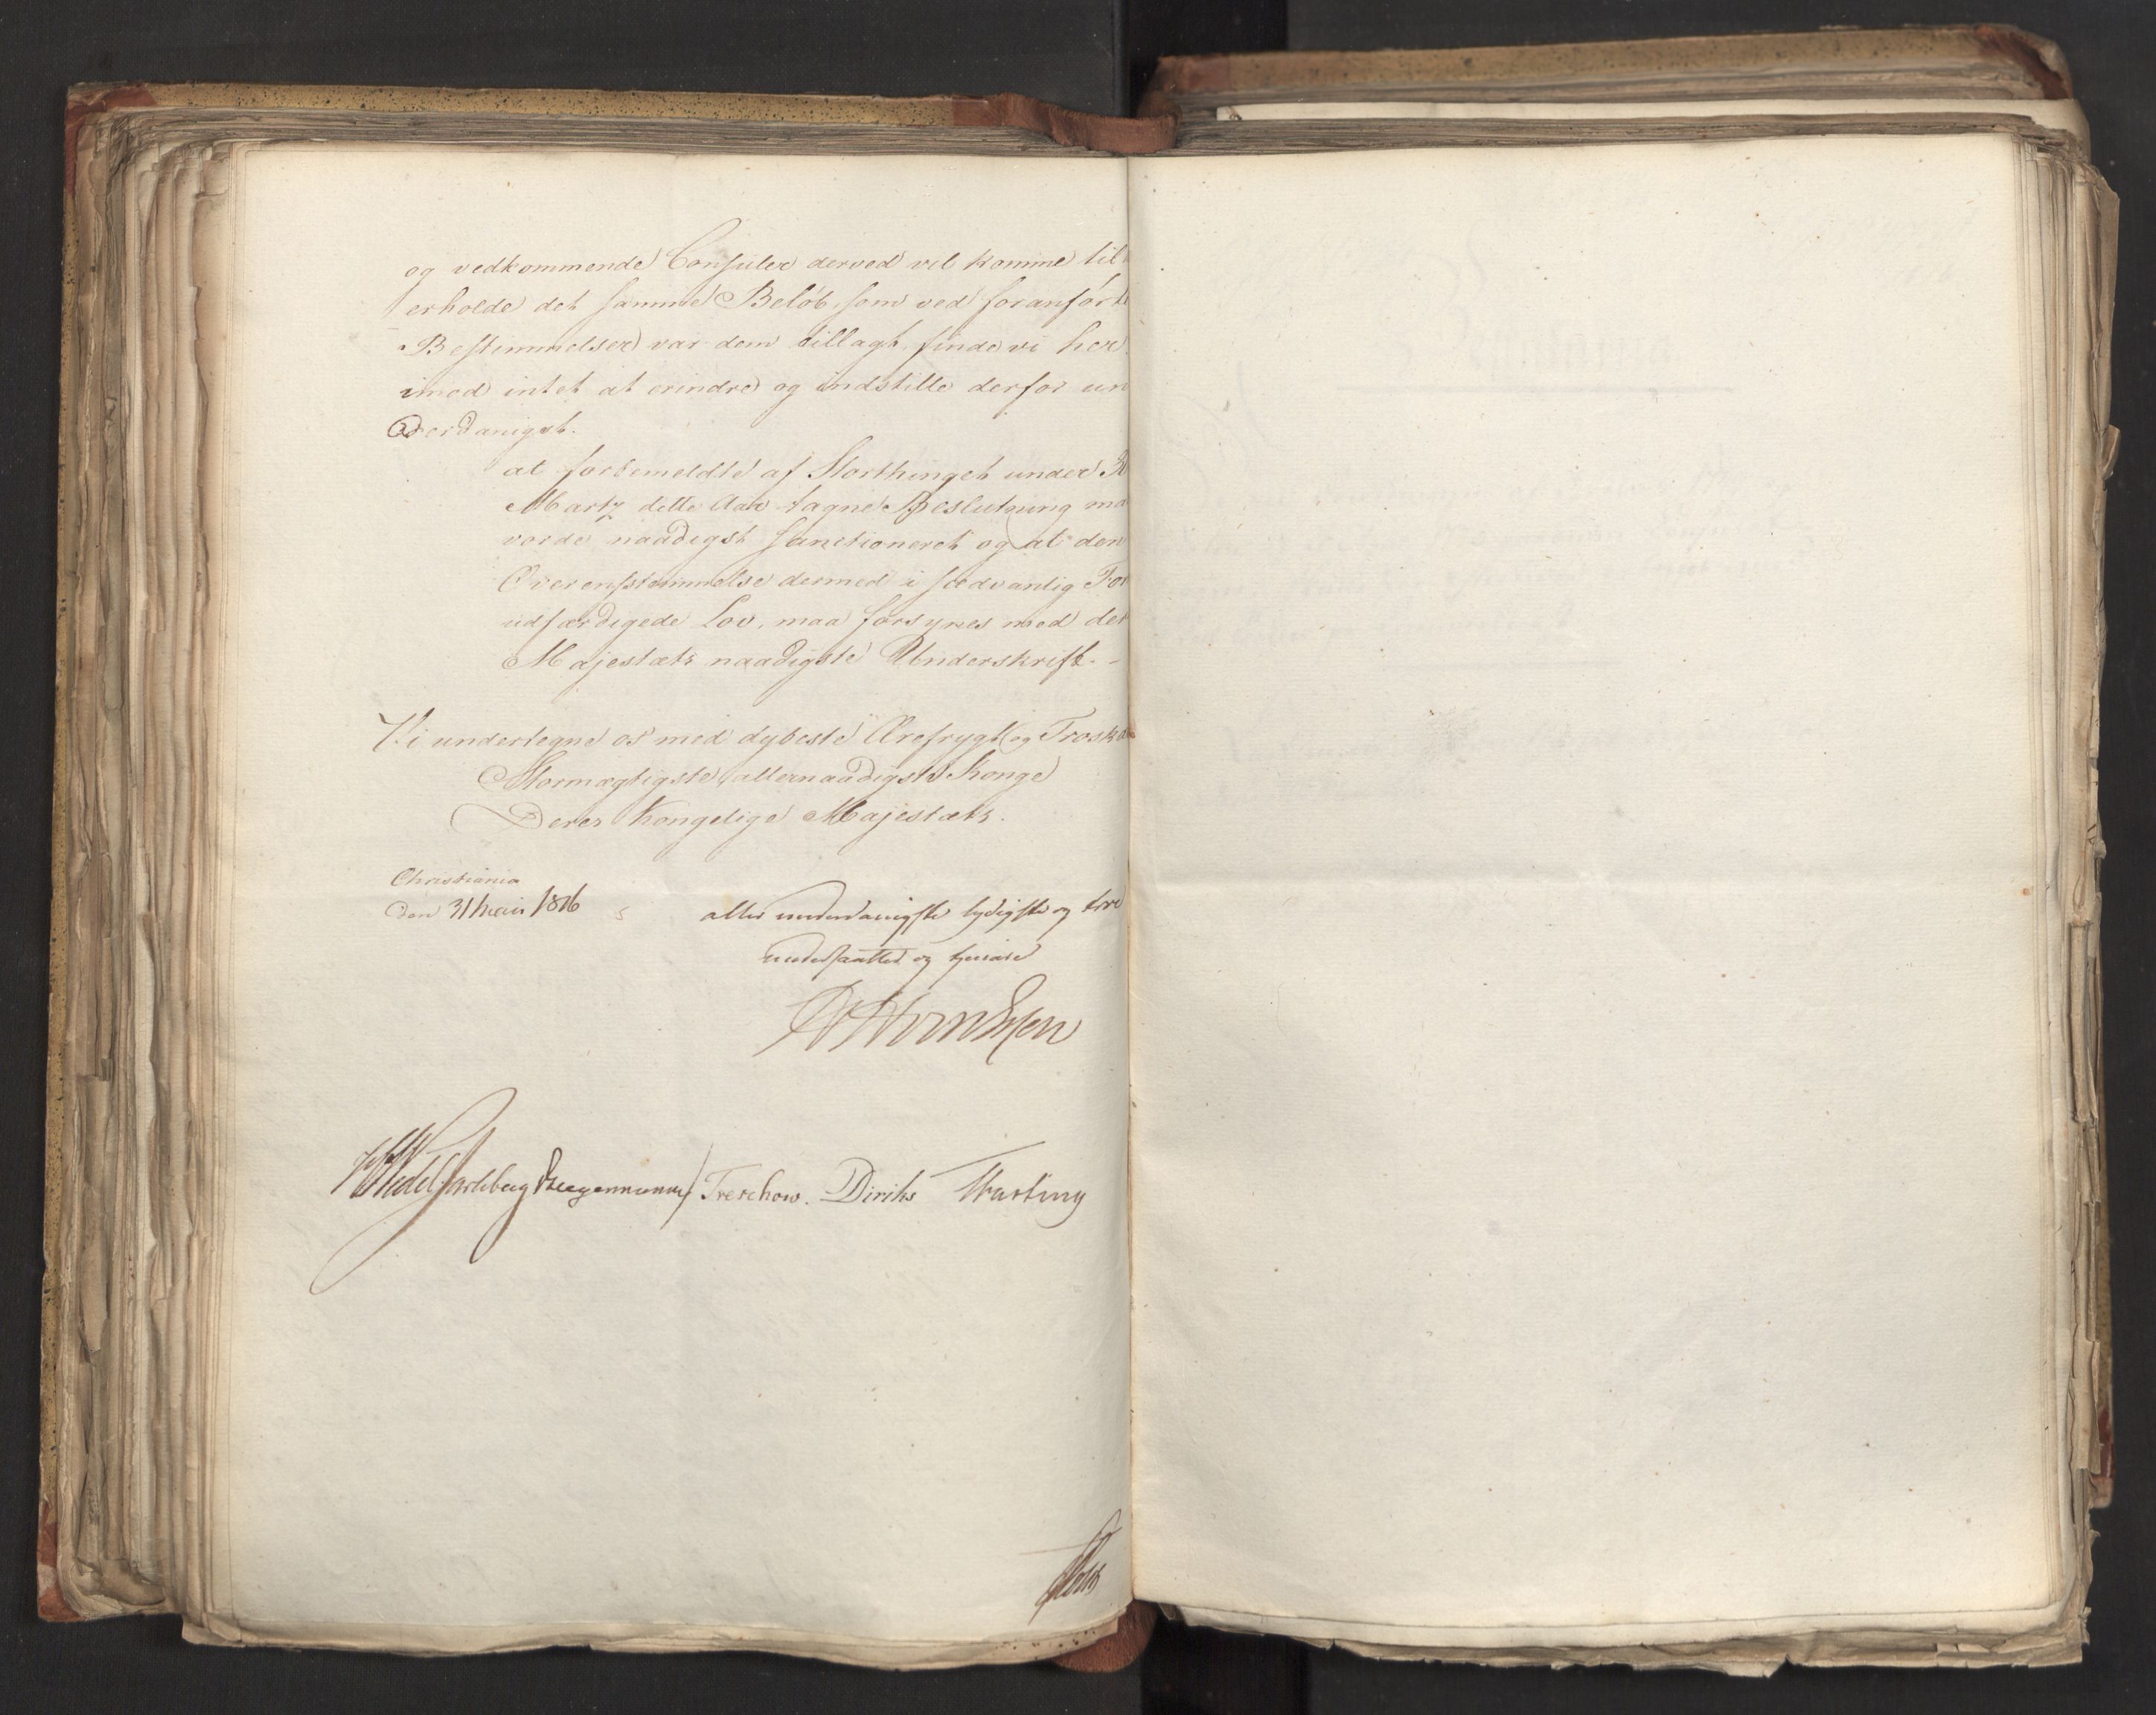 og vedkommende Consuler derved vil komme til
erholde det samme Beløb, som ved foranførte
Bestemmelser var dem tillagt, finde vi her
imod intet at erindre og indstille derfor un
derdanigst.
at forbemeldte af Storthinget under
Martz dette Aar tagne Beslutning maa
vorde naadigst sanctioneret og at den
Overensstemmelse dermed i sædvanlig For
udfærdigede Lov, maa forsynes med der
Majestæts naadigste Underskrift. -
Vi undertegne os med dybeste Ærefrygt og Troska
Stormægtigste, allernaadigste Konge
Deres Kongelige Majestæts.
Christiania
den 31 Mai 1816
aller underdanigste lydigste og troe
undersaatter og tjenere
Wedel Jarlsberg Treschow. Diriks